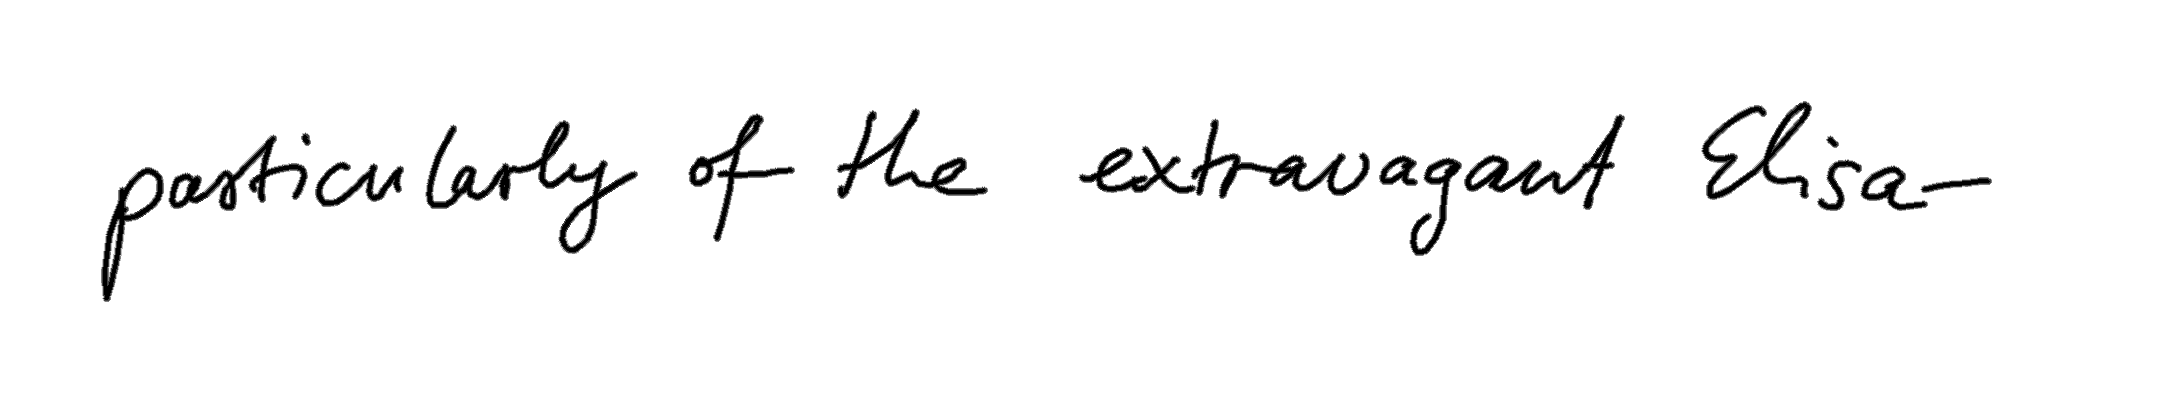 particularly of the extravagant Elisa-